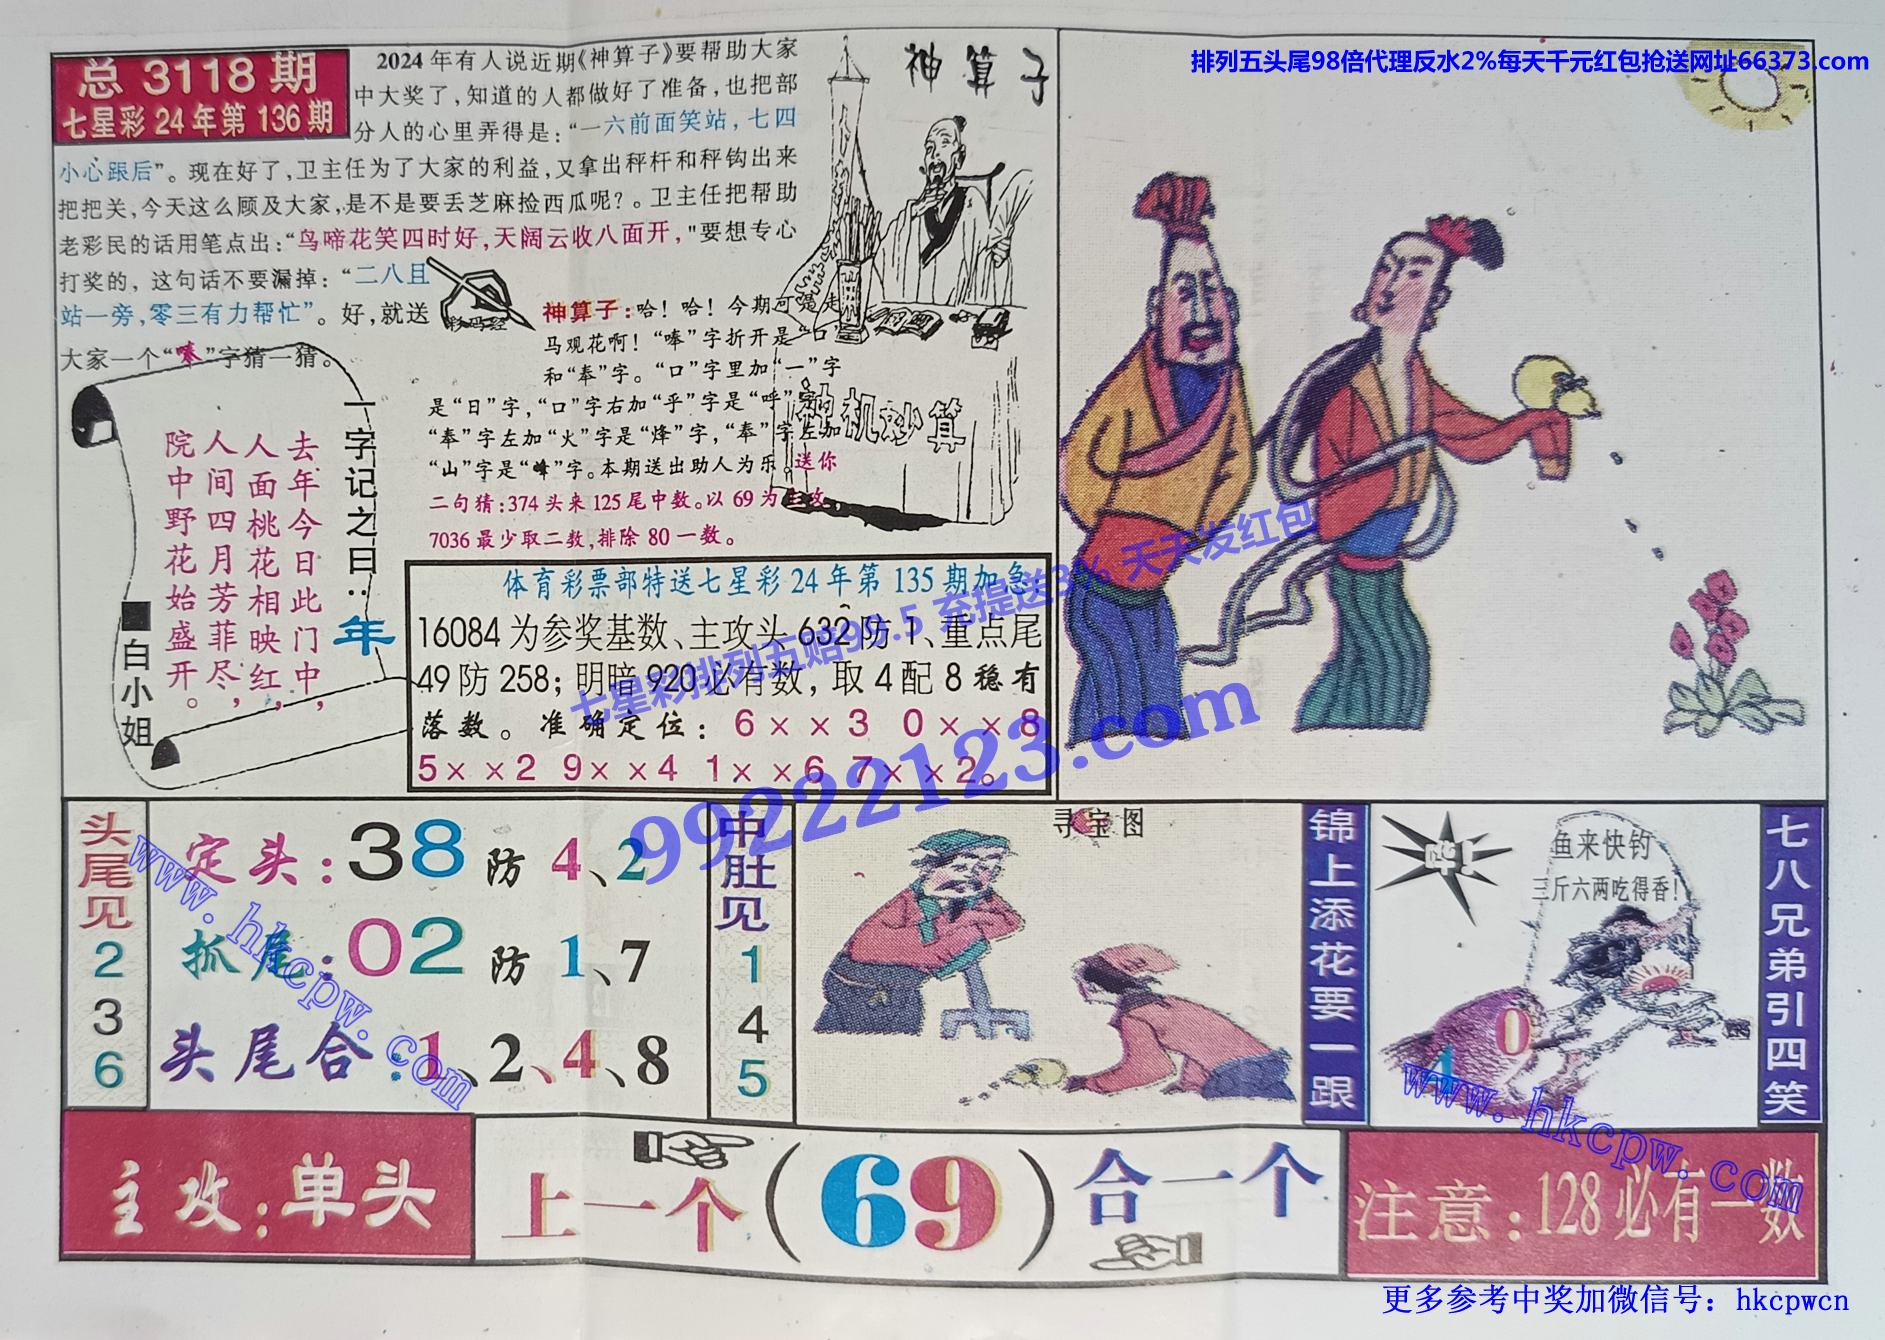 排列五头尾98倍代理反水2%每天千元红包抢送网址66373.com
总 3118 期
七星彩 24 年第 136 期
2024 年有人说近期《神算子》要帮助大家
中大奖了，知道的人都做好了准备，也把部
分人的心里弄得是：“一六前面笑站，七四
小心跟后”。现在好了，卫主任为了大家的利益，又拿出秤杆和秤钩出来
把把关，今天这么顾及大家，是不是要丢芝麻捡西瓜呢？。卫主任把帮助
老彩民的话用笔点出：“鸟啼花笑四时好，天阔云收八面开，"要想专心
打奖的，这句话不要漏掉：“二八且
站一旁，零三有力帮忙”。好，就送
大家一个“唪”字猜一猜。
彩码经
神算子
神算子：哈！哈！今期可是走
马观花啊！“唪”字折开是“口”
和“奉”字。“口”字里加“一”字
是“日”字，“口”字右加“乎”字是“呼”字，
“奉”字左加“火”字是“烽”字，“奉”字左加
“山”字是“峰”字。本期送出助人为乐。送你
二句猜：374 头来 125 尾中数。以 69 为主攻
7036 最少取二数，排除 80 一数。
神机妙算
一字记之曰：年
去年今日此门中，
人面桃花相映红，
人间四月芳菲尽，
院中野花始盛开。
■白小姐
体育彩票部特送七星彩 24 年第 135 期加急
16084 为参奖基数、主攻头 632 防 1、重点尾
49 防 258；明暗 920 必有数，取 4 配 8 稳有
落数。准确定位：6××3 0××8
5××2 9××4 1××6 7××2。
七星彩排列五赔99.5 充提送3% 天天发红包
99222123.com
头尾见
2
3
6
定头：38 防 4、2
抓尾：02 防 1、7
头尾合：1、2、4、8
www.hkcpw.com
中肚见
1
4
5
寻宝图
锦上添花要一跟
鱼来快钓
三斤六两吃得香！
0
1
七八兄弟引四笑
www.hkcpw.com
主攻：单头
上一个（69）合一个
注意：128 必有一数
更多参考中奖加微信号：hkcpwcn